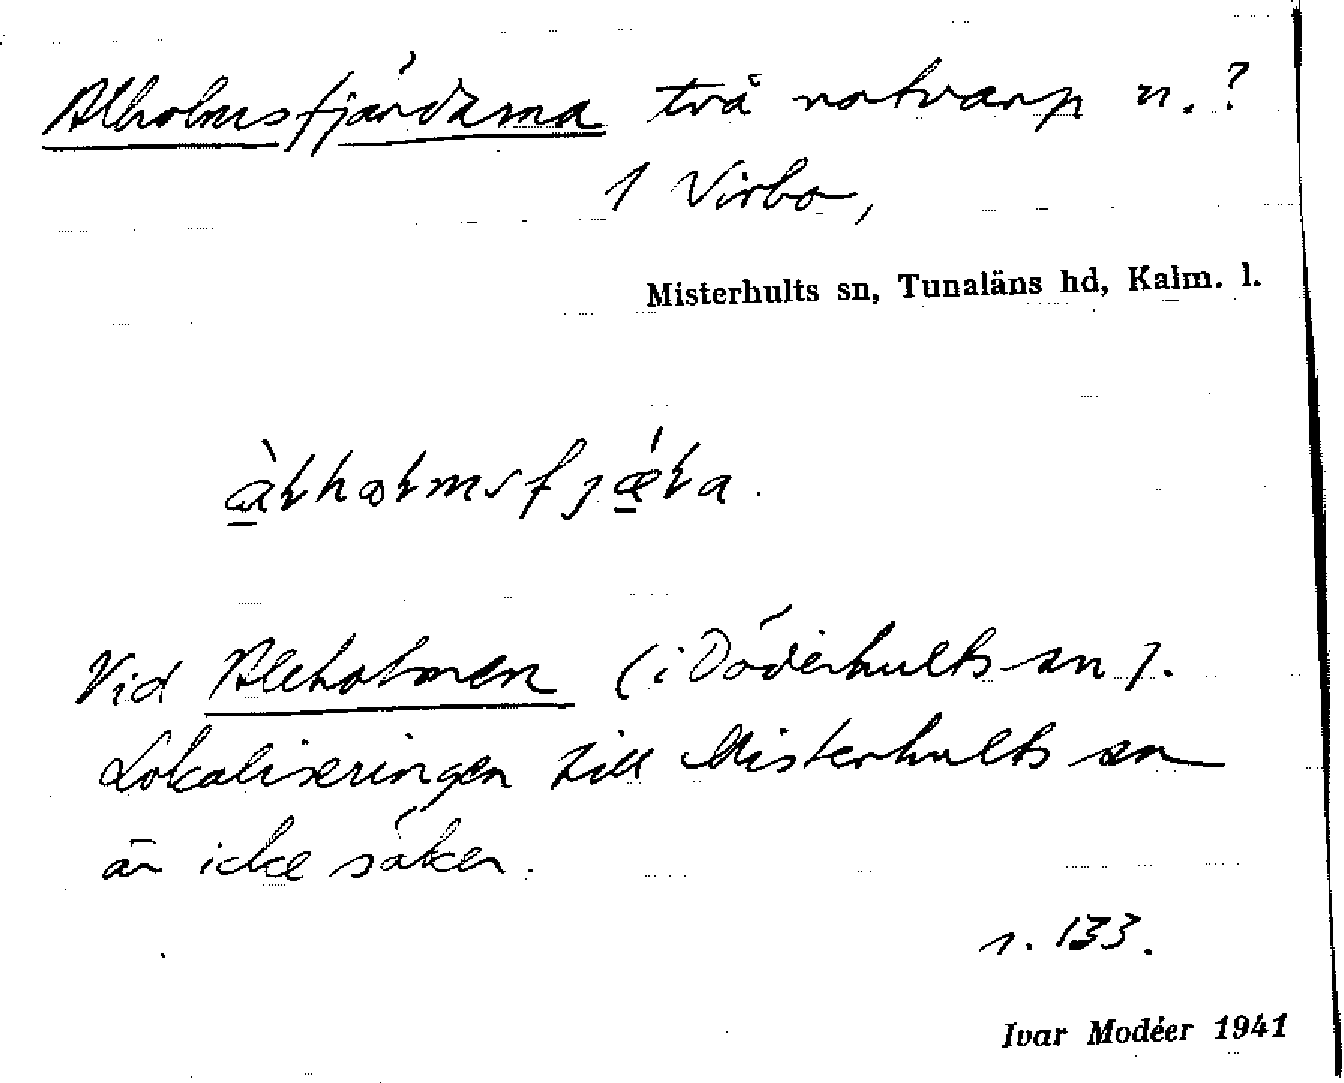 Alholmsfjärdarna två notvarp n.?
1 Virbo,
Misterhults sn, Tunaläns hd, Kalm. l.
Vid Aleholmen (i Döderhults sn).
Lokaliseringen till Misterhults sn
är icke säker.
s. 133.
Ivar Modéer 1941